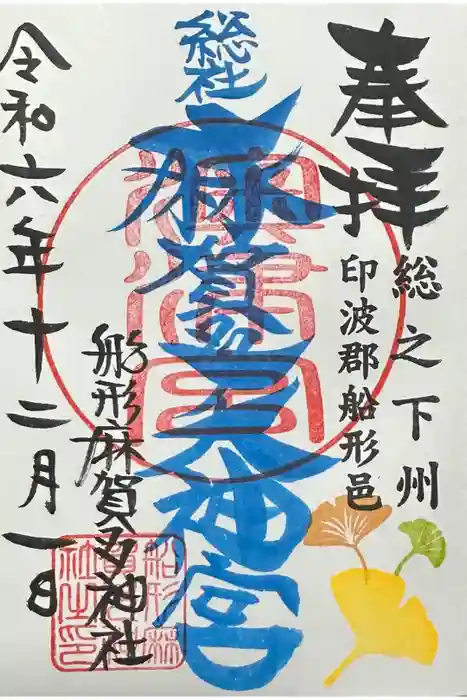 奉拝
総之下州
印波郡船形邑
総社
麻賀多神宮
船形麻賀多神社
令和六年十二月一日